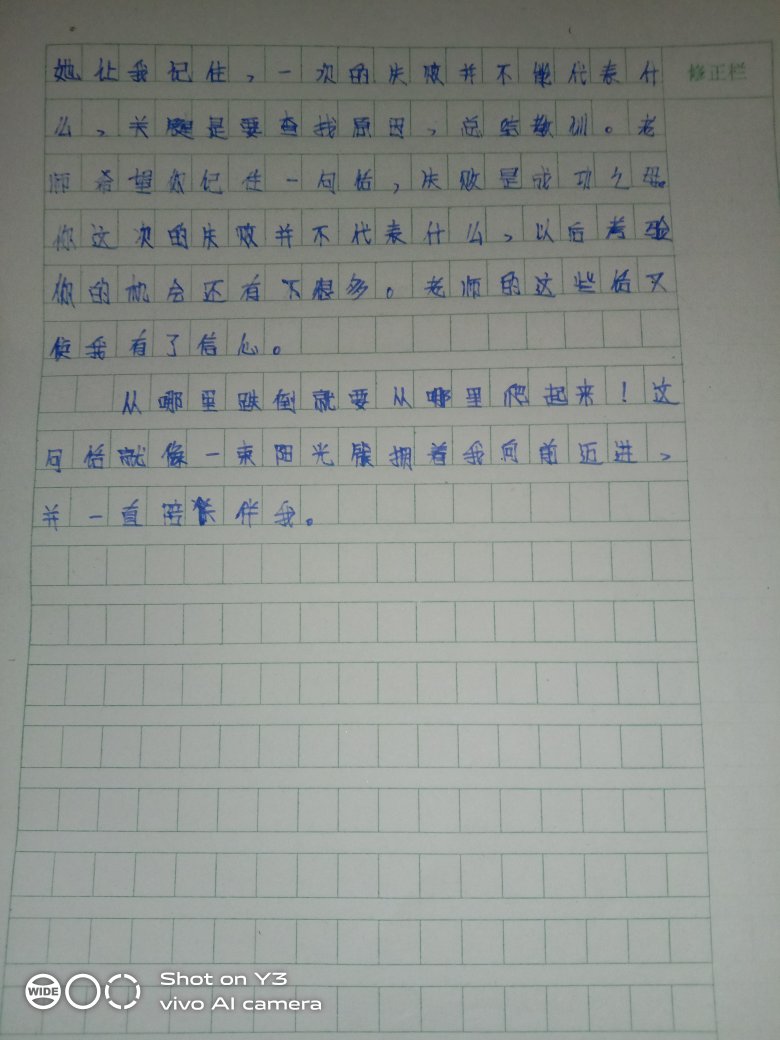 她让我记住，一次的失败并不能代表什
修正栏
么，关键是要查找原因，总结教训。老
师希望你记住一句话，失败是成功之母。
你这次的失败并不代表什么，以后考验
你的机会还有很多。老师的这些话又
使我有了信心。
从哪里跌倒就要从哪里爬起来！这
句话就像一束阳光簇拥着我向前迈进，
并一直陪伴我。
WIDE
Shot on Y3
vivo AI camera